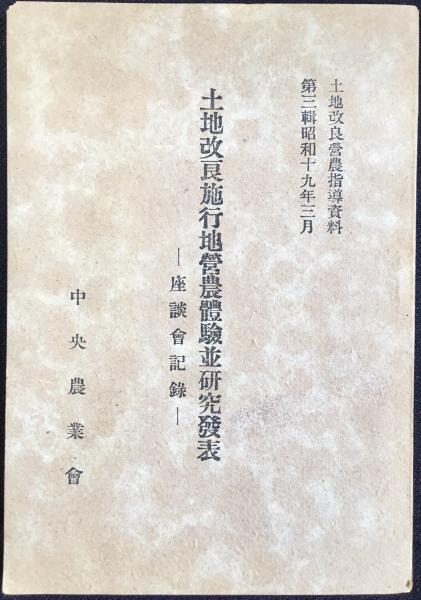 土地改良營農指導資料
第三輯昭和十九年三月
土地改良施行地營農體驗並硏究發表
―座談會記錄―
中央農業會